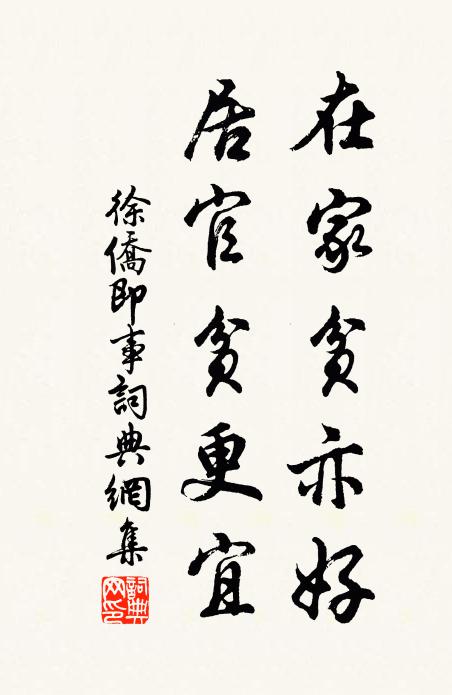 在家貧亦好
居官貧更宜
徐僑即事詞典網集
詞典網印